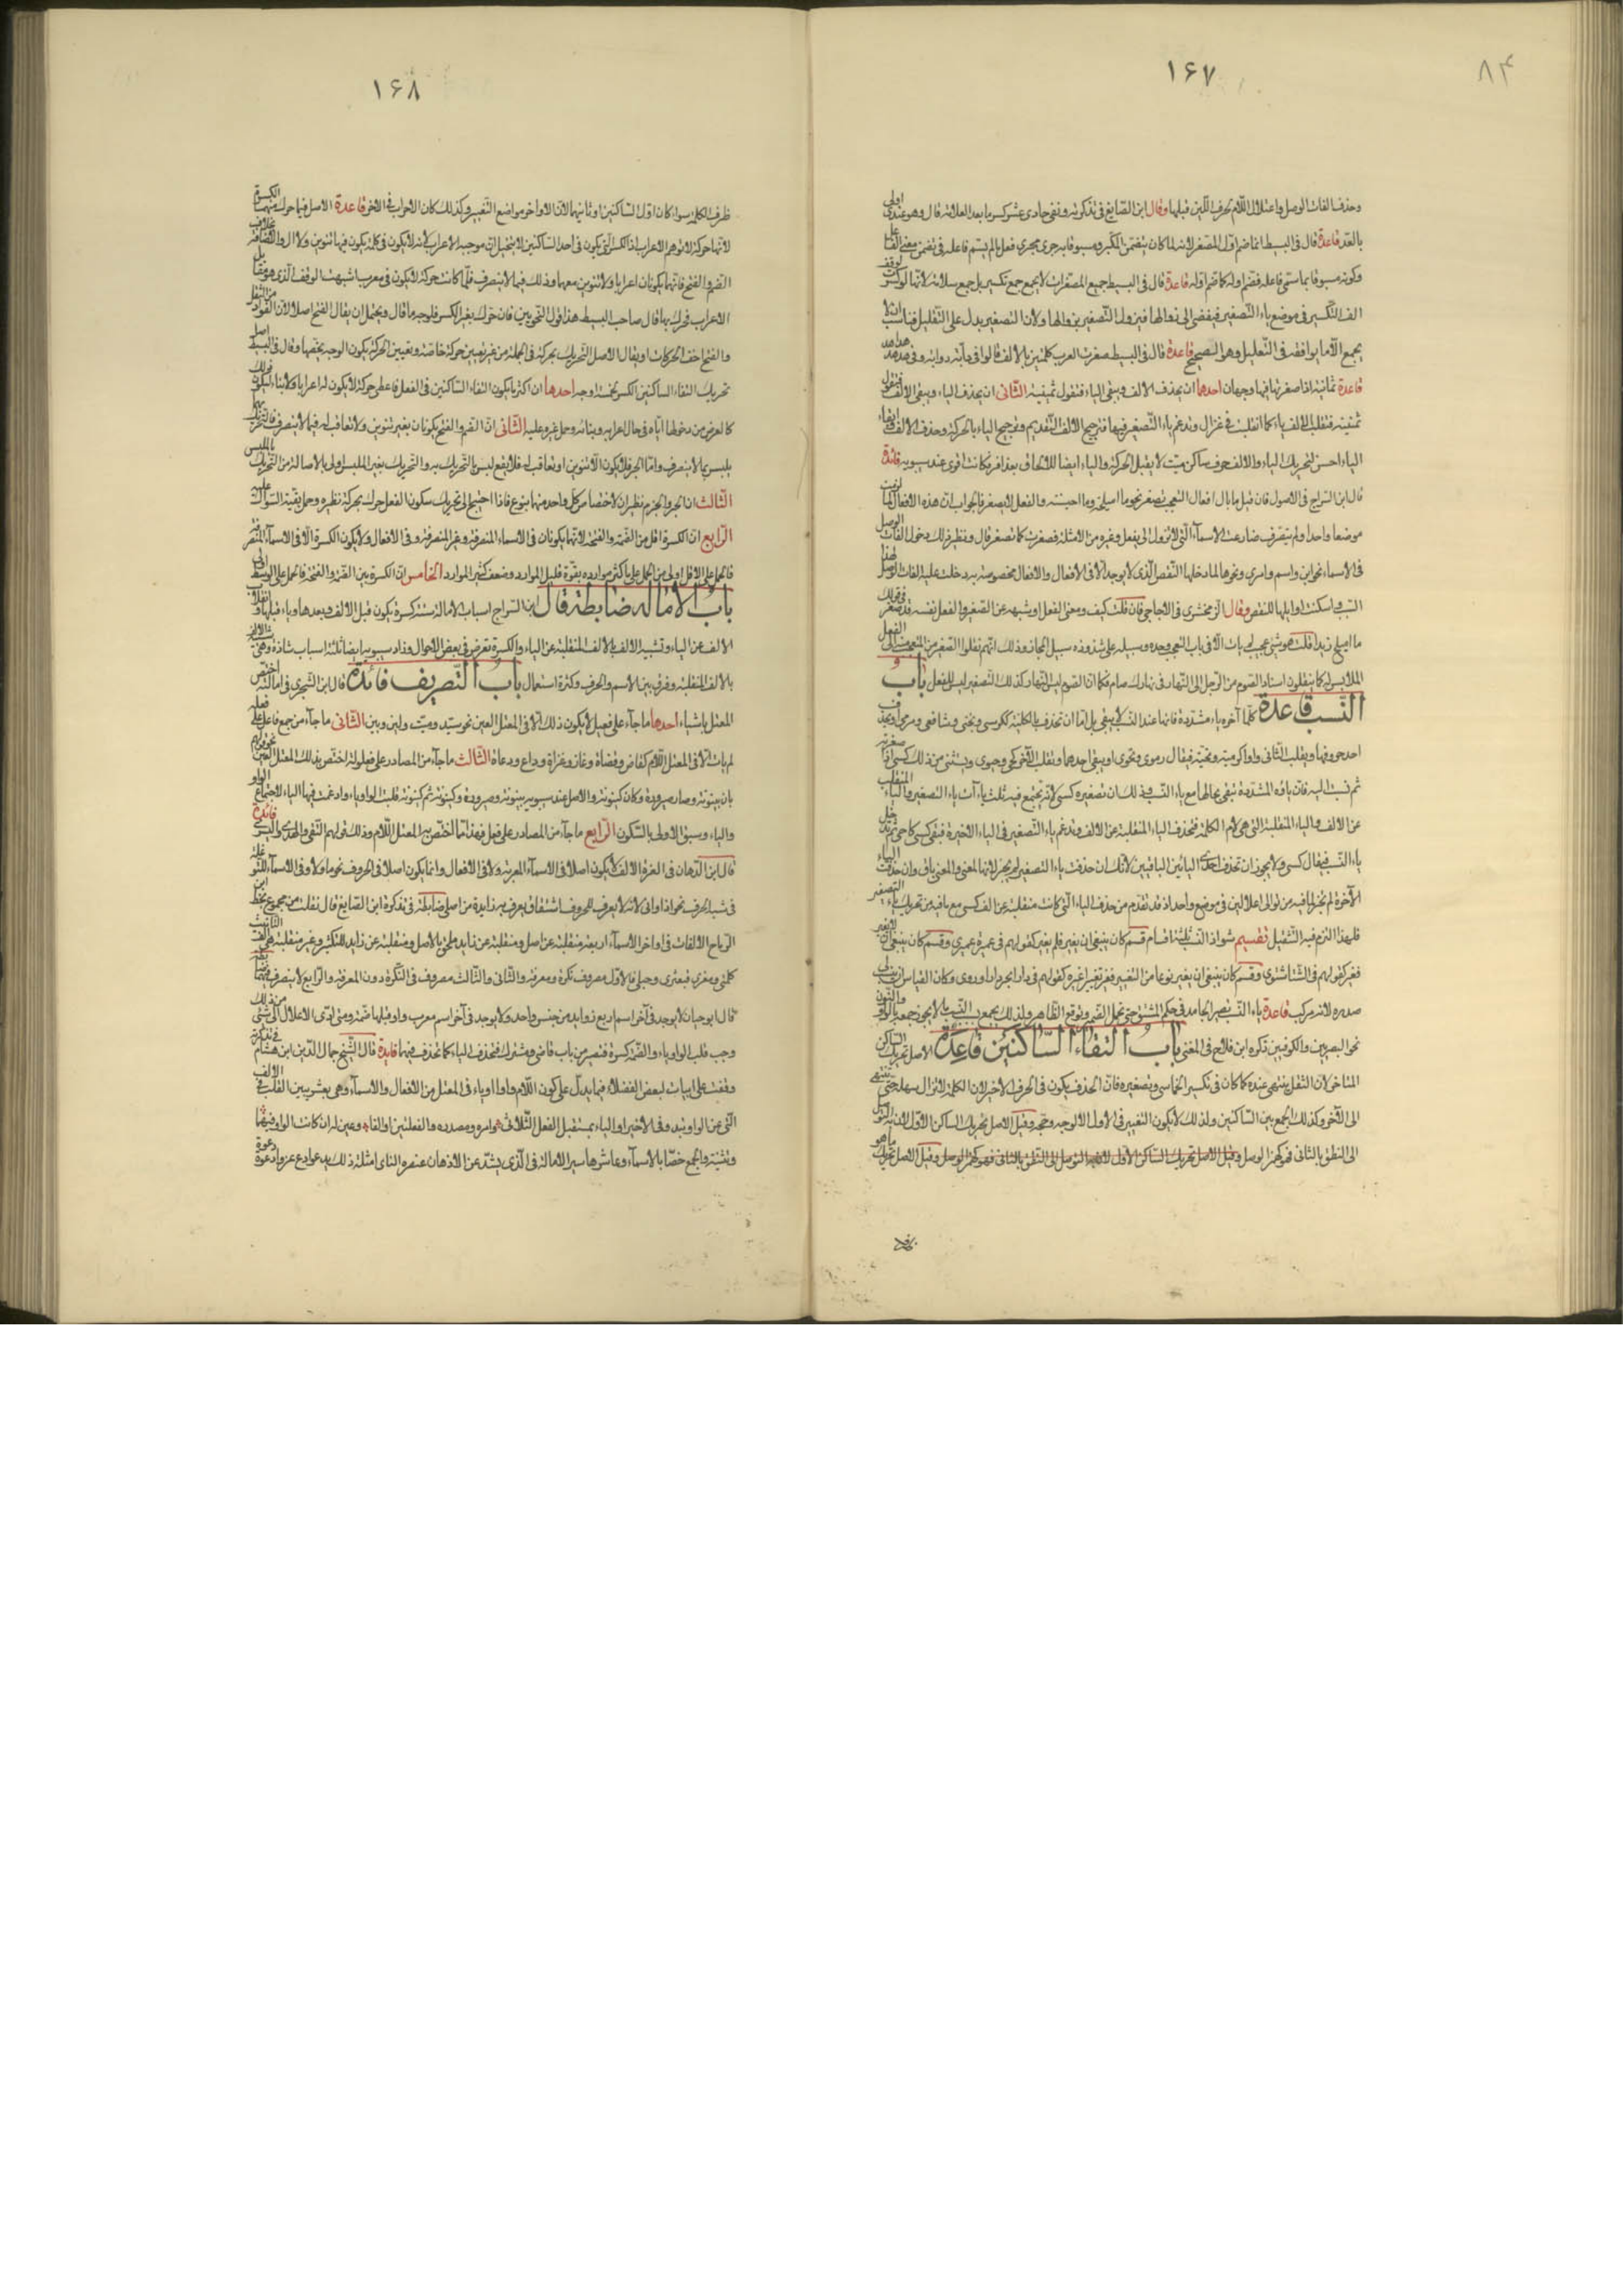 ٨٤
١٦٧
وحذف الفات الوصل واعتلال اللام بحرف اللين قبلها وقال ابن الصايغ في تذكرته ونفى حادى عشر كسر ما بعد العلامة قال وهو عندى اولى
بالعد قاعدة قال في البسيط انما ضم اول المصغر لانه لما كان يتضمن المكبر ومسبوقا به جرى مجرى فعل ما لم يسم فاعله في تضمن معنى الفاعل
وكونه مسبوقا بما سمى فاعله فضم اوله كما ضم اوله قاعدة قال في البسيط جميع المصغرات لا يجمع جمع تكسير بل جمع سلامة لانها لو كسرت لوقع
الف التكسير في موضع ياء التصغير فيفضى الى زوالها فيزول التصغير بزوالها ولان التصغير يدل على التقليل فناسب ان لا
يجمع الا ما يوافقه في التعليل وهو الصحيح قاعدة قال في البسيط صغرت العرب كلمتين بالالف قالوا في دابة دوابة وفي هدهد هداهد
قاعدة ثمانية اذا صغرتها فيها وجهان احدهما ان يحذف الالف ويبقى الياء فتقول ثمينية الثانى ان يحذف الياء ويبقى الالف فتقول
ثمينة فتقلب الالف ياء كما انقلبت في غزال وتدغم ياء التصغير فيها فترجح الالف التقديم وترجح الياء بالحركة وحذف الالف وابقاء
الياء احسن لتحريك الياء والالف حرف ساكن ميت لا يقبل الحركة والياء ايضا للالحاق بعذافر فكانت اقوى عند سيبويه فائدة
قال ابن السراج في الاصول فان قيل ما بال افعال التعجب تصغر نحو ما اميلحه وما احيسنه والفعل لا يصغر فالجواب ان هذه الافعال لما لزمت
موضعا واحدا ولم يتصرف ضارعت الاسماء التى لا تزول الى يفعل وغيره من الامثلة فصغرت كما تصغر قال ونظير ذلك دخول الفات الوصل
في الاسماء نحو ابن واسم وامرئ ونحوها لما دخلها النقص الذى لا يوجد الا في الافعال والافعال مخصوصة به دخلت عليها الفات الوصل لهذا
السبب اسكنت اوايلها للنقص وقال الزمخشرى في الاحاجى فان قلت كيف ومعنى الفعل وشبهه عن الصغر والفعل نفسه قد صغر في قولك
ما اميلح زيدا قلت هو شئ عجيب لم يات الا في باب التعجب وحده وسبيله على شذوذه سبيل المجاز وذلك انهم نقلوا التصغير من المتعجب منه الى الفعل
الملابس له كما ينقلون اسناد الصوم من الرجل الى النهار في نهارك صائم فكما ان الصوم ليس للنهار كذلك التصغير ليس للفعل باب
النسب قاعدة كلما آخره ياء مشددة فانها عند النسب لا يبقى بل اما ان تحذف بالكلية ككرسى وبختى وشافعى ومرمى او يحذف
احد حروفها ويقلب الثانى واوا كرمية وتحية فيقال رموى وتحوى او يبقى احدهما وتقلب الاخر كحى وحيوى ويستثنى من ذلك كسى اذا صغرته
ثم نسبت اليه فان ياؤه المشددة تبقى بحالها مع ياء النسب وذلك ان تصغيره كسى لانه يجتمع فيه ثلث ياءات ياء التصغير والياء المنقلب
عن الالف والياء المنقلبة التى هى لام الكلمة فتحذف الياء المنقلبة عن الالف وتدغم ياء التصغير في الياء الاخيرة فتبقى كسى كاحى ثم تدخل
ياء النسب فيقال كسى ولا يجوز ان تحذف احدى اليائين الباقيين لانك ان حذفت ياء التصغير لم يجز لانها لمعنى والمعنى باق وان حذفت الياء
الآخرة لم تجز لما فيه من توالى اعلالين في موضع واحد اذ قد تقدم من حذف الياء التى كانت منقلبة عن الف كسى مع ما فيه من تحريك ياء التصغير
فلهذا التزم فيه التثقيل تقسيم شواذ النسب ثلثة اقسام قسم كان ينبغى ان يغير فلم يغير كقولهم في عميرة عميرى وقسم كان ينبغى ان لا يغير
فغير كقولهم في الشتا شتوى وقسم كان ينبغى ان يغير نوعا من التغيير فغير تغييرا غيره كقولهم في دارابجرد دراوردى وكان القياس ان ينسب الى
صدره لانه مركب قاعدة ياء النسب تصير الجامد في حكم المشتق حتى تحمل الضمير وترفع الظاهر ولذلك يجمع بالواو والنون
نحو البصريين والكوفيين ذكره ابن فلاح في المغنى باب التقاء الساكنين قاعدة الاصل تحريك الساكن
المتاخر لان الثقل ينتهى عنده كما كان في تكسير الخماسى وتصغيره فان الحذف يكون في الحرف الاخير لان الكلمة لا تزال سهلة حتى تنتهى
الى الآخر وكذلك الجمع بين الساكنين ولذلك لا يكون التغيير في الاول الا لوجه يرجحه وقيل الاصل تحريك الساكن الاول لان به التوصل
الى النطق بالثانى فهو كهمزة الوصل وقيل الاصل تحريك الساكن الاول لان به التوصل الى النطق بالثانى فهو كهمزة الوصل وقيل الاصل تحريك ما هو
١٦٨
طرف الكلمة سواء كان اول الساكنين او ثانيهما لان الاواخر مواضع التغيير ولذلك كان الاعراب في الاخر قاعدة الاصل فيما حرك منهما الكسرة
لانها حركة لا توهم الاعراب اذ الكسر الذى يكون في احد الساكنين لا يتخيل ان موجبه الاعراب لانه لا يكون في كلمة يكون فيها تنوين ولا ال ولا اضافة بخلاف
الضم والفتح فانهما يكونان اعرابا ولا تنوين معهما وذلك فيما لا ينصرف فلما كانت حركة لا يكون في معرب اشبهت الوقف الذى هو مقابل
الاعراب فحرك بها قال صاحب البسيط هذا قول النحويين فان حرك بغير الكسر فلوجه ما قال ويحتمل ان يقال الفتح اصل لان الفرار من الثقل
والفتح اخف الحركات او يقال الاصل التحريك بحركة في الجملة من غير تعيين حركة خاصة وتعيين الحركة يكون لوجه يخصها وقال في البسيط اصل
تحريك التقاء الساكنين الكسر لخمسة اوجه احدها ان اكثر ما يكون التقاء الساكنين في الفعل فاعطى حركة لا يكون له اعرابا ولا بناء ليكون ذلك
كالعوض من دخولها اياه في حال اعرابه وبنائه وحمل غيره عليه الثانى ان الضم والفتح يكونان بغير تنوين ولا تعاقب له فيما لا ينصرف
يلبس بما لا ينصرف واما الجر فلا يكون الا بتنوين او تعاقب له فلا يقع لبس بالتحريك به والتحريك بغير الملبس اولى بالاصالة من التحريك بالملبس
الثالث ان الجر والجزم نظيران لاختصاص كل واحد منهما بنوع فاذا احتيج الى تحريك سكون الفعل حرك بحركة نظيره وحمل بقية السواكن عليه
الرابع ان الكسرة اقل من الضمة والفتحة لانهما يكونان في الاسماء المنصرفة وغير المنصرفة وفي الافعال ولا يكون الكسرة الا في الاسماء المنصرفة
فالحمل على الاقل اولى من الحمل على ما كثر موارده بقوة قليل الموارد وضعف كثير الموارد الخامس ان الكسرة بين الضمة والفتحة فالحمل على الوسط اولى
باب الامالة ضابطة قال ابن السراج اسباب الامالة ستة كسرة يكون قبل الالف وبعدها وياء قبلها وانقلاب
الالف عن الياء وتشبيه الالف بالالف المنقلبة عن الياء والكسرة تعرض في بعض الاحوال وزاد سيبويه ايضا ثلثة اسباب شاذة وهى شبه الالف
بالالف المنقلبة وفرق بين الاسم والحرف وكثرة استعمال باب التصريف فائدة قال ابن الشجرى في اماليه اختص
المعتل باشياء احدها ما جاء على فيعل لا يكون ذلك الا في المعتل العين نحو سيد وميت ولين وبين الثانى ما جاء من جمع فاعل على فعلة
لم يات الا في المعتل اللام كقاض وقضاة وغاز وغزاة وداع ودعاة الثالث ما جاء من المصادر على فيعلولة اختص بذلك المعتل العين نحو قولهم
بان بينونة وصار صيرورة وكان كينونة والاصل عند سيبويه بينونة وصيرورة وكينونة ثم كينونة قلبت الواو ياء وادغمت فيها الياء لاجتماع الواو
والياء وسبق الاولى بالسكون الرابع ما جاء من المصادر على فعل فهذا مما اختص به المعتل اللام وذلك قولهم التقى والهدى والسرى فائدة
قال ابن الدهان في الغرة الالف لا يكون اصلا في الاسماء المعربة ولا في الافعال وانما يكون اصلا في الحروف نحو ما ولا وفي الاسماء المتوغلة
في شبه الحرف نحو اذا وانى لانه لا يعرف للحروف اشتقاق يعرف به زايدة من اصلى ضابطة في تذكرة ابن الصايغ قال نقلت من مجموع بخط ابن
الرماح الالفات في اواخر الاسماء اربعة منقلبة عن اصل ومنقلبة عن زايد ملحق بالاصل ومنقلبة عن زايد للتكثير وغير منقلبة وهى الف التانيث
كلهى ومعزى قبعثرى وحبلى فالاول مصروف نكرة ومعرفة والثانى والثالث مصروف في النكرة دون المعرفة والرابع لا ينصرف فيهما
قال ابو حيان لا يوجد في آخر اسم اربع زوايد من جنس واحد ولا يوجد في آخر اسم معرب واو قبلها ضمة ومتى ادى الاعلال الى شئ من ذلك
وجب قلب الواو ياء والضمة كسرة فتصير من باب قاض ومشترك فتحذف الياء كما تحذف فيهما فايدة قال الشيخ جمال الدين ابن هشام في تذكرته
وقفت على ابيات لبعض الفضلاء فيما يدل على كون اللام واوا او ياء في المعتل من الافعال والاسماء وهى بعشر يبين القلب في الالف
التى عن الواو تبدو في الاخير او الياء بمستقبل الفعل الثلاثى وامره ومصدره والفعلتين والفاء وعين له ان كانت الواو فيهما
وتثنية والجمع خصا بالاسماء وعاشرها سير الامالة في الذى يشذ عن الاذهان عنصره الناى امثلة ذلك يدعو ادع غزوا دعوة